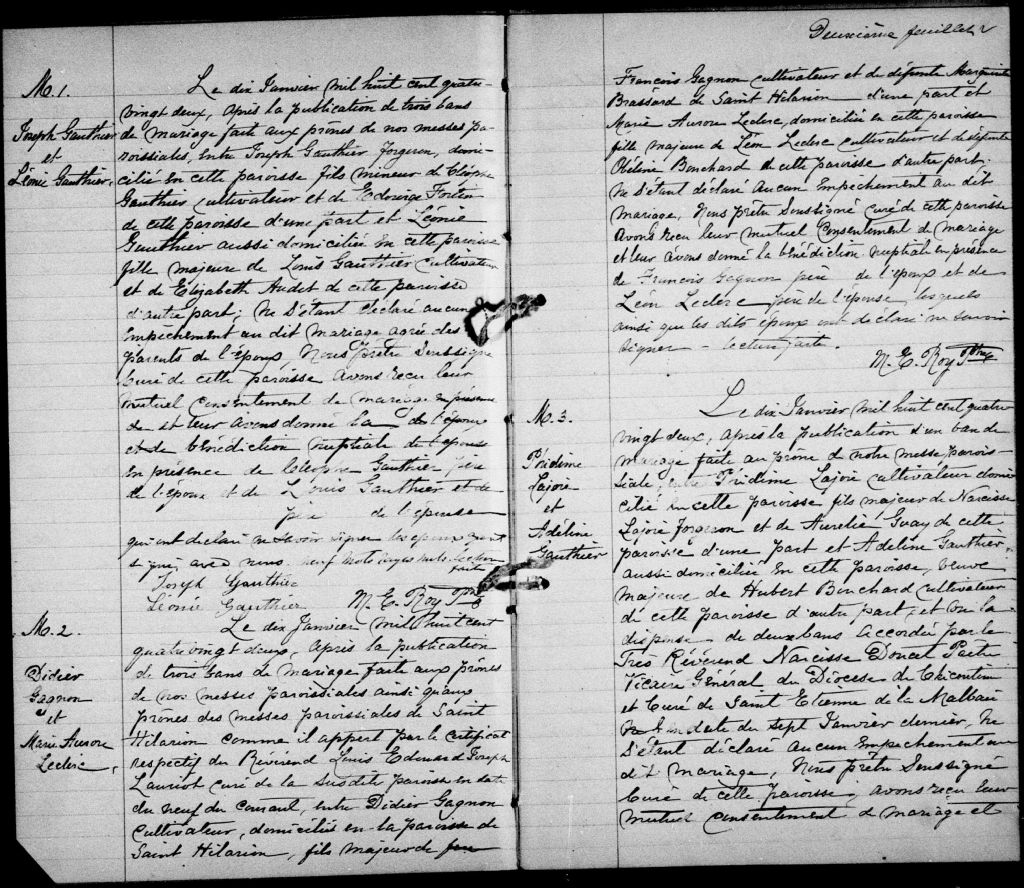 M. 1.
Joseph Gauthier
et
Léonie Gauthier.
Le dix Janvier mil huit cent quatre-
vingt deux, après la publication de trois bans
de mariage faite aux prônes de nos messes pa-
roissiales, entre Joseph Gauthier forgeron, domi-
cilié en cette paroisse fils mineur de Cléophe
Gauthier cultivateur et de Edwige Fortin
de cette paroisse d'une part et Léonie
Gauthier aussi domiciliée en cette paroisse
fille majeure de Louis Gauthier cultivateur
et de Elizabeth Audet de cette paroisse
d'autre part; ne s'étant déclaré aucun
empêchement au dit mariage agréé des
parents de l'époux, Nous prêtre soussigné
curé de cette paroisse avons reçu leur
mutuel consentement de mariage en présence
de et leur avons donné la de l'époux
et de bénédiction nuptiale de l'épouse
en présence de Cléophe Gauthier père
de l'époux et de Louis Gauthier et de
père de l'épouse
qui ont déclaré ne savoir signer les époux ont
signé avec nous. neuf mots rayés nuls. lecture
faite
Joseph Gauthier
Léonie Gauthier M. E. Roy Ptre
M. 2
Didier
Gagnon
et
Marie Aurore
Leclerc.
Le dix Janvier mil huit cent
quatre vingt deux, après la publication
de trois bans de mariage faite aux prônes
de nos messes paroissiales ainsi qu'aux
prônes des messes paroissiales de Saint
Hilarion comme il appert par le certificat
respectif du Révérend Louis Edouard Joseph
Lauriot curé de la susdite paroisse en date
du neuf du courant, entre Didier Gagnon
cultivateur, domicilié en la paroisse de
Saint Hilarion, fils majeur de feu
Deuxième feuillet
François Gagnon cultivateur et de défunte Marguerite
Brassard de Saint Hilarion d'une part et
Marie Aurore Leclerc, domiciliée en cette paroisse
fille majeure de Léon Leclerc cultivateur et de défunte
Hélène Bouchard de cette paroisse d'autre part.
Ne s'étant déclaré aucun empêchement au dit
mariage, Nous prêtre soussigné curé de cette paroisse
avons reçu leur mutuel consentement de mariage
et leur avons donné la bénédiction nuptiale en présence
de François Gagnon père de l'époux et de
Léon Leclerc père de l'épouse lesquels
ainsi que les dits époux ont déclaré ne savoir
signer - lecture faite
M. E. Roy Ptre
M. 3.
Lajoie
et
Adéline
Gauthier
Le dix Janvier mil huit cent quatre
vingt deux, après la publication d'un ban de
mariage faite au prône de notre messe parois-
siale, entre Lajoie cultivateur domi-
cilié en cette paroisse fils majeur de Narcisse
Lajoie forgeron et de Aurélie Guay de cette
paroisse d'une part et Adéline Gauthier,
aussi domiciliée en cette paroisse, veuve
majeure de Hubert Bouchard cultivateur
de cette paroisse d'autre part; et vu la
dispense de deux bans accordée par le
Très Révérend Narcisse Doucet Prêtre
Vicaire Général du Diocèse de Chicoutimi
et Curé de Saint Etienne de la Malbaie
en date du sept Janvier dernier, ne
s'étant déclaré aucun empêchement au
dit mariage, Nous prêtre soussigné
curé de cette paroisse, avons reçu leur
mutuel consentement de mariage et